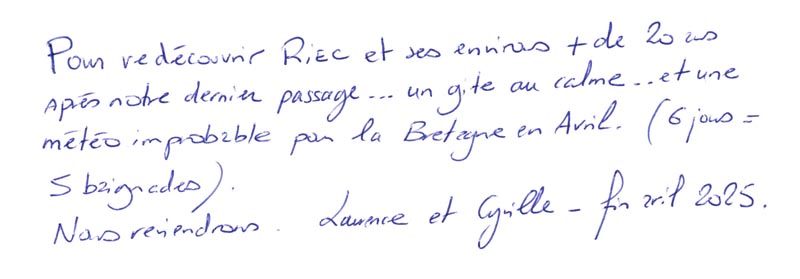 Pour redécouvrir RIEC et ses environs + de 20 ans
Après notre dernier passage... un gîte au calme... et une
météo improbable pour la Bretagne en Avril. (6 jours =
5 baignades).
Nous reviendrons. Laurence et Cyrille - fin avril 2025.